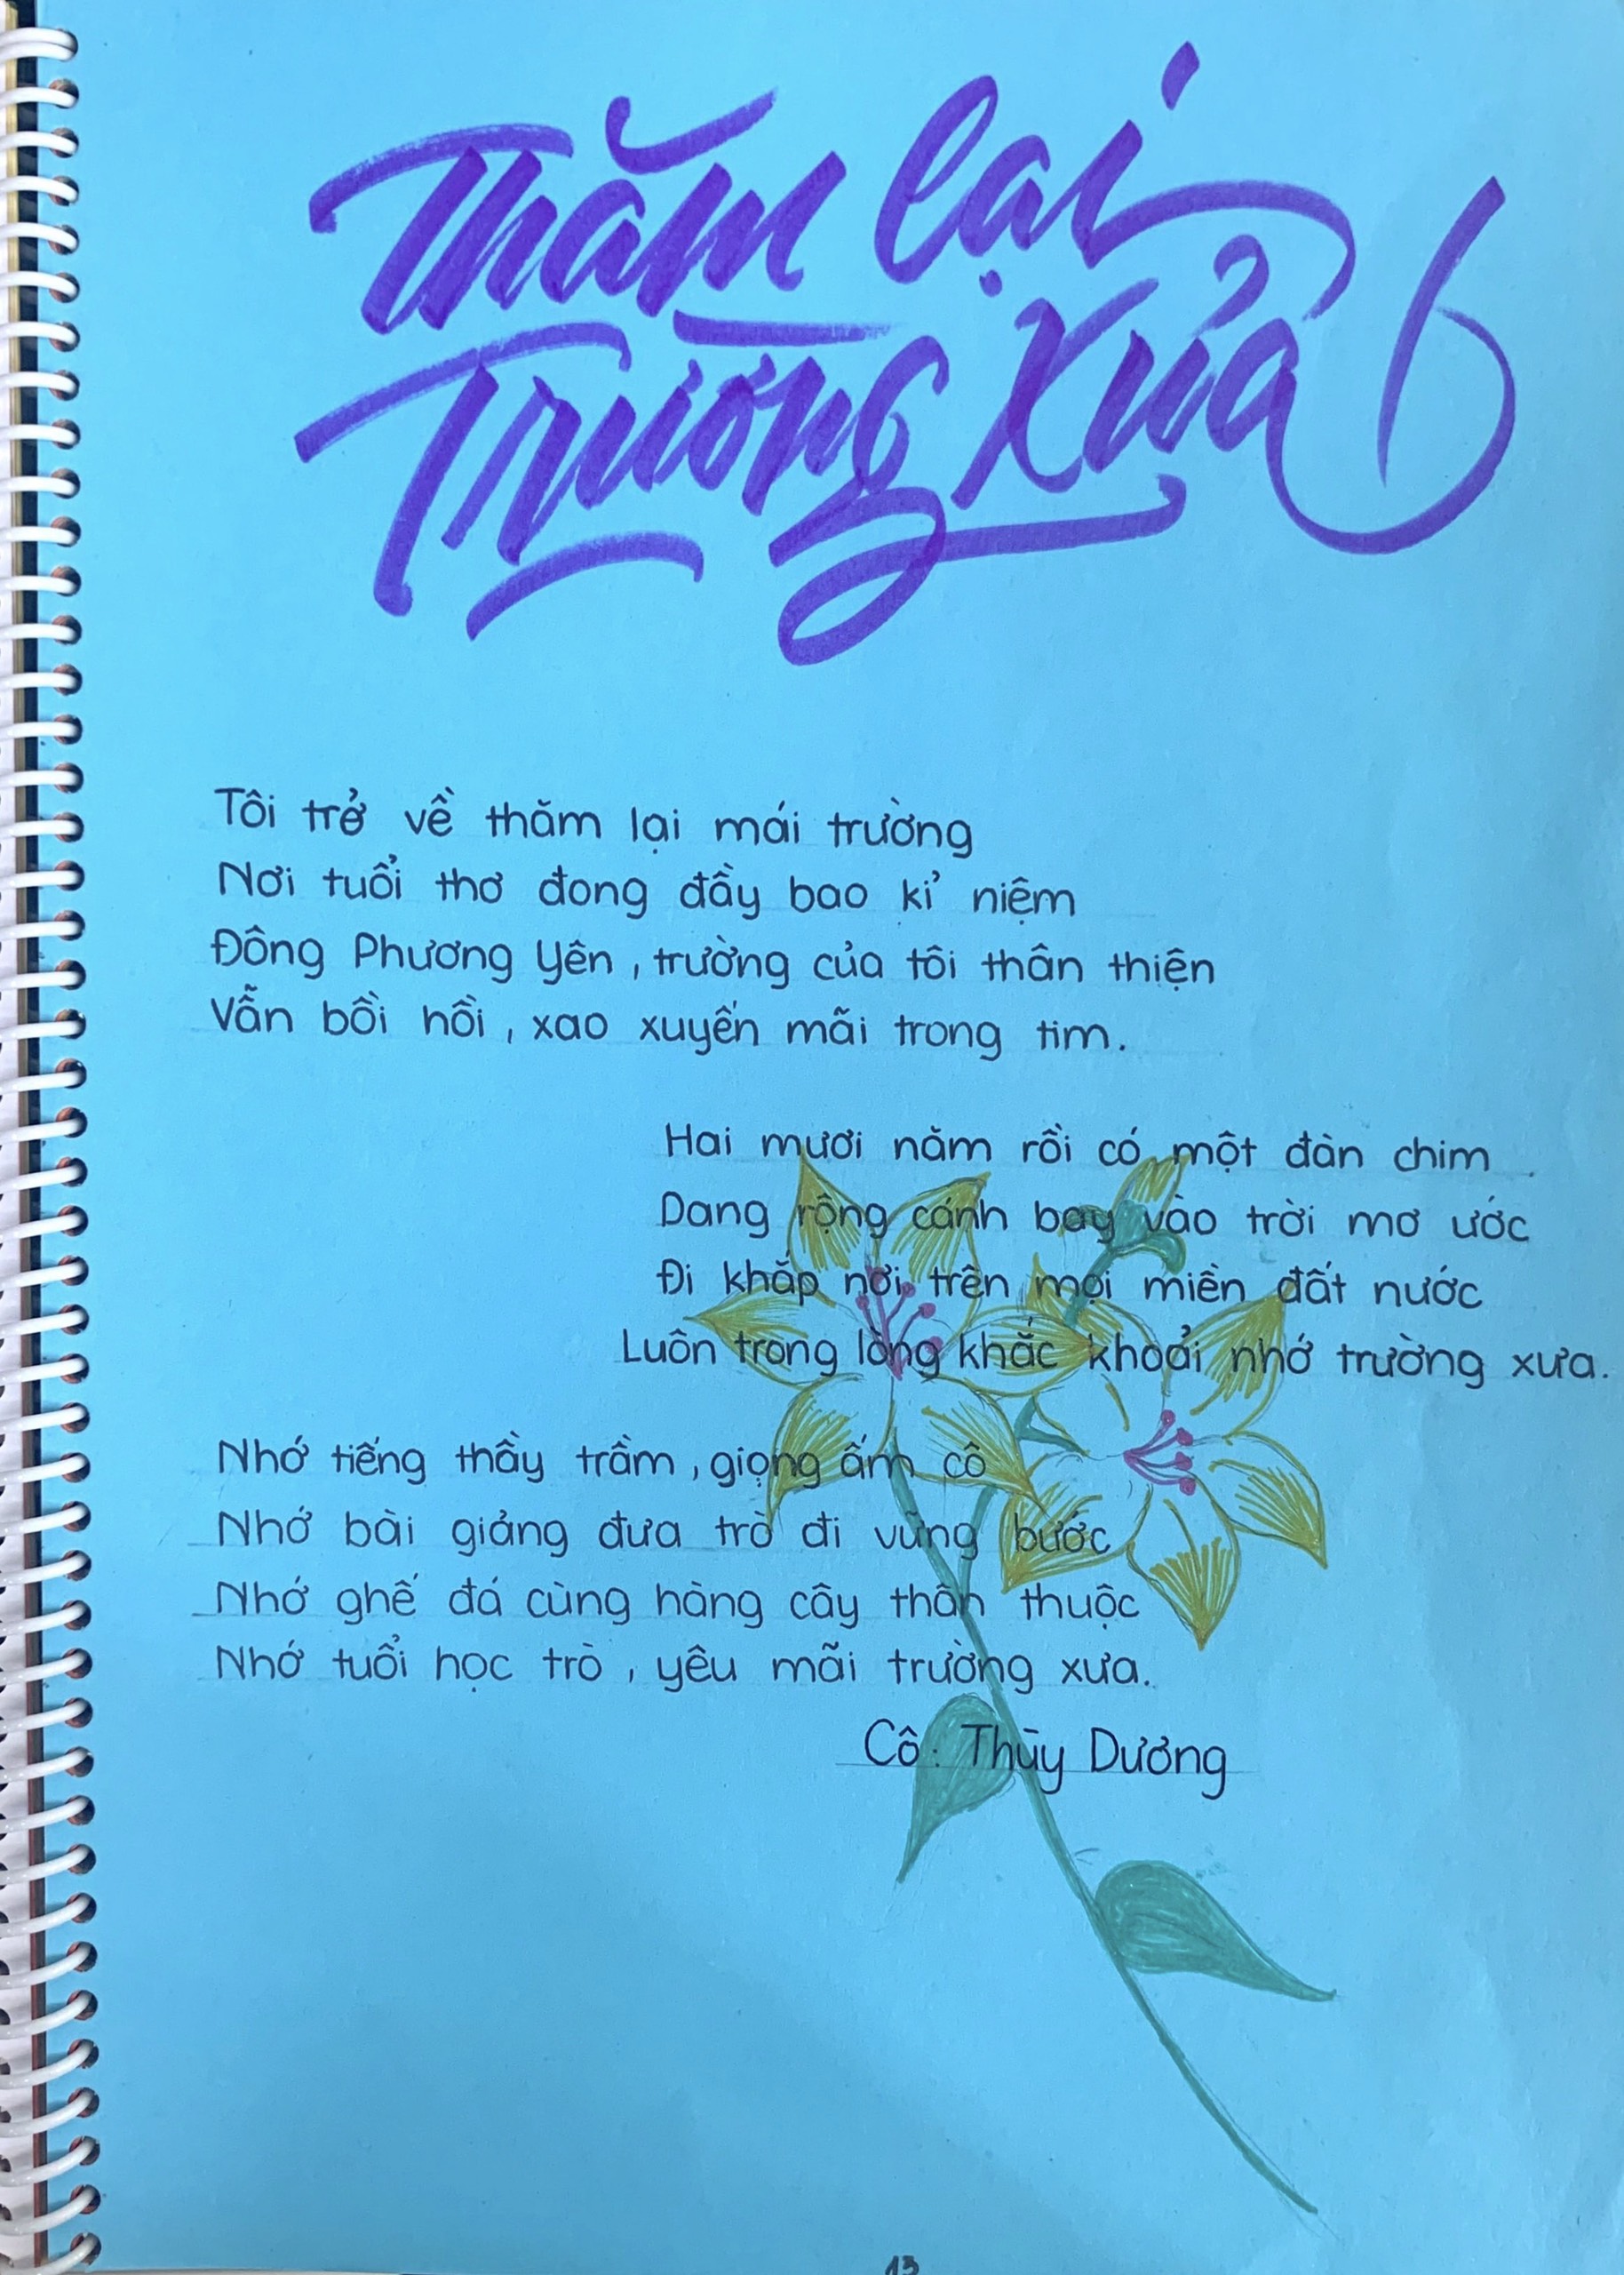 Thăm lại
Trường Xưa
Tôi trở về thăm lại mái trường
Nơi tuổi thơ đong đầy bao kỉ niệm
Đông Phương Yên, trường của tôi thân thiện
Vẫn bồi hồi, xao xuyến mãi trong tim.
Hai mươi năm rồi có một đàn chim
Dang rộng cánh bay vào trời mơ ước
Đi khắp nơi trên mọi miền đất nước
Luôn trong lòng khắc khoải nhớ trường xưa.
Nhớ tiếng thầy trầm, giọng ấm cô
Nhớ bài giảng đưa trò đi vững bước
Nhớ ghế đá cùng hàng cây thân thuộc
Nhớ tuổi học trò, yêu mãi trường xưa.
Cô: Thùy Dương
13